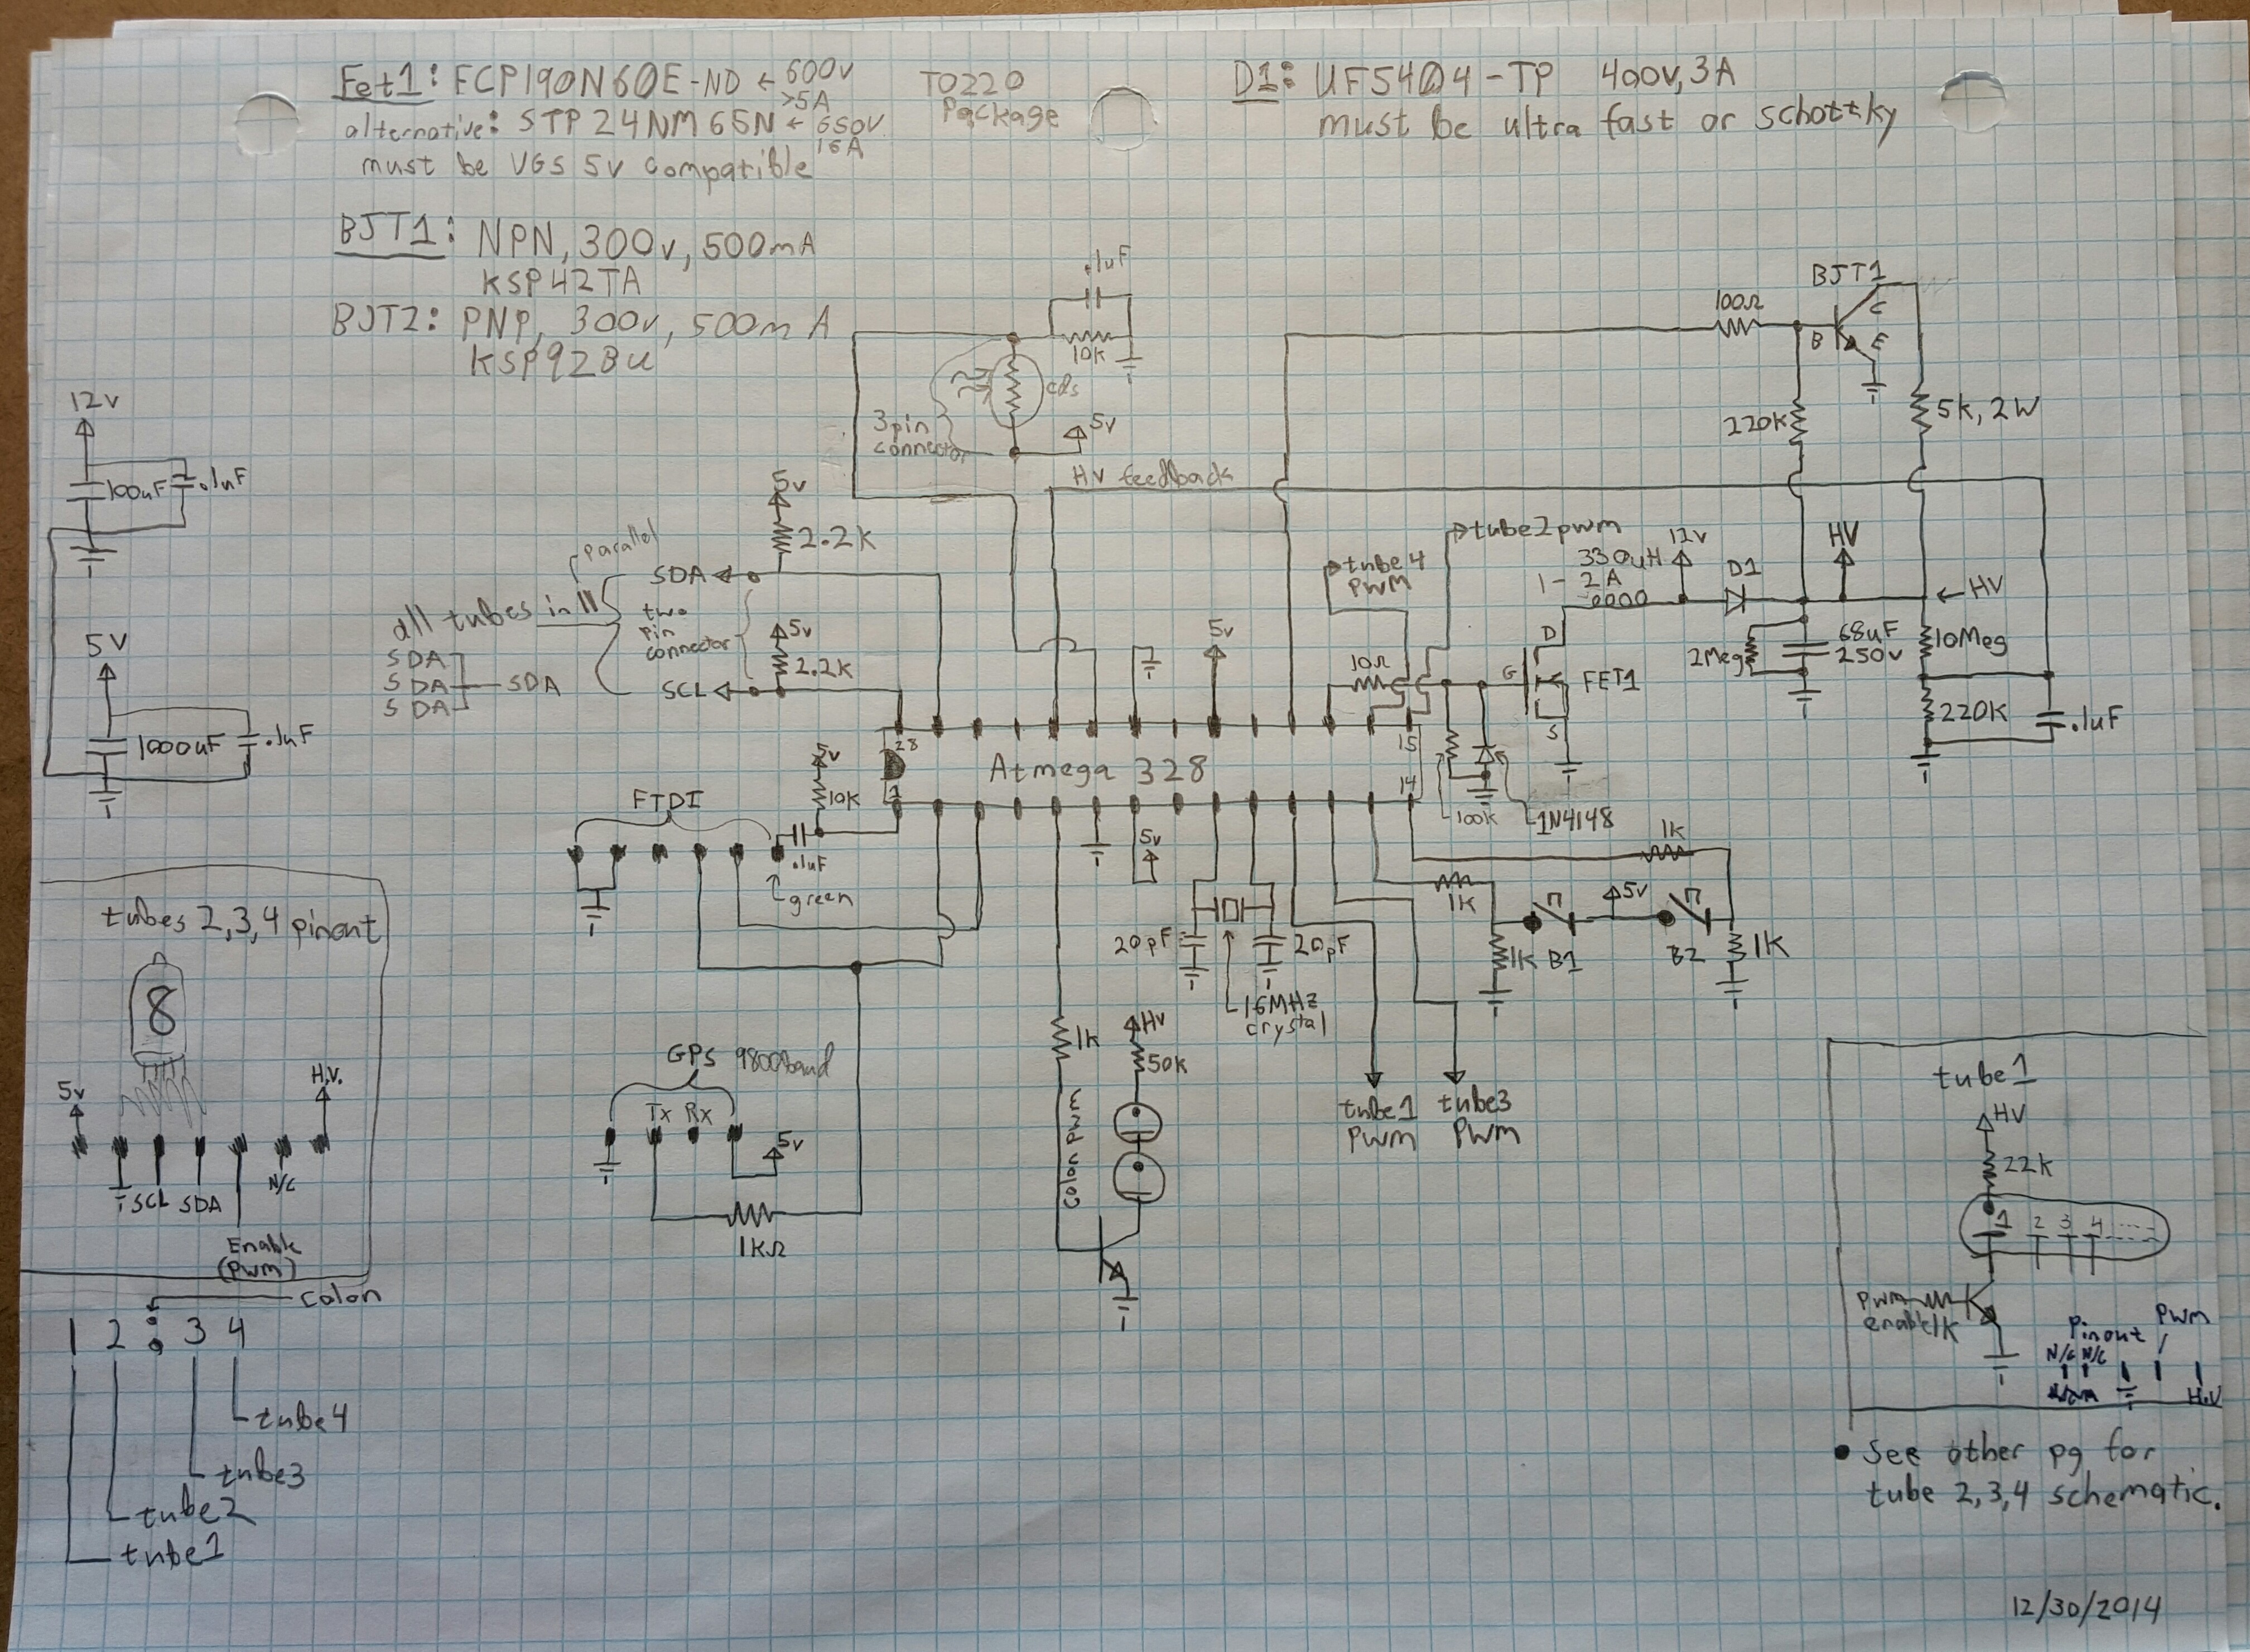 Fet1: FCP190N60E-ND ← 600v
>5A
alternative: STP24NM65N ← 650V
16A
must be VGS 5v compatible
TO220
Package
D1: UF5404-TP 400v, 3A
must be ultra fast or schottky
BJT1: NPN, 300v, 500mA
KSP42TA
BJT2: PNP, 300v, 500mA
KSP92BU
.1uF
10k
cds
3pin
connector
5v
HV feedback
100Ω
BJT1
C
B
E
220k
5k, 2W
12v
100uF
.1uF
5V
1000uF
.1uF
5v
2.2k
parallel
SDA
all tubes in ||
two
pin
connector
5v
2.2k
SCL
SDA
SDA
SDA
SDA
tube2pwm
tube4
PWM
330uH
1-2A
12v
D1
HV
← HV
5v
10Ω
G
D
S
FET1
2Meg
68uF
250v
10Meg
220K
.1uF
28
15
Atmega 328
1
14
5v
10k
100k
1N4148
FTDI
.1uF
green
5v
1k
1k
5v
1k
B1
B2
1k
20pF
20pF
16MHz
crystal
tubes 2,3,4 pinout
8
5v
H.V.
SCL
SDA
N/C
Enable
(Pwm)
GPS 9800baud
Tx Rx
5v
1kΩ
1k
HV
50k
Colon PWM
tube1
PWM
tube3
PWM
tube1
HV
22k
1 2 3 4
PWM
enable
1k
Pinout
PWM
N/C N/C
H.V
colon
1 2 : 3 4
tube4
tube3
tube2
tube1
• See other pg for
tube 2,3,4 schematic.
12/30/2014